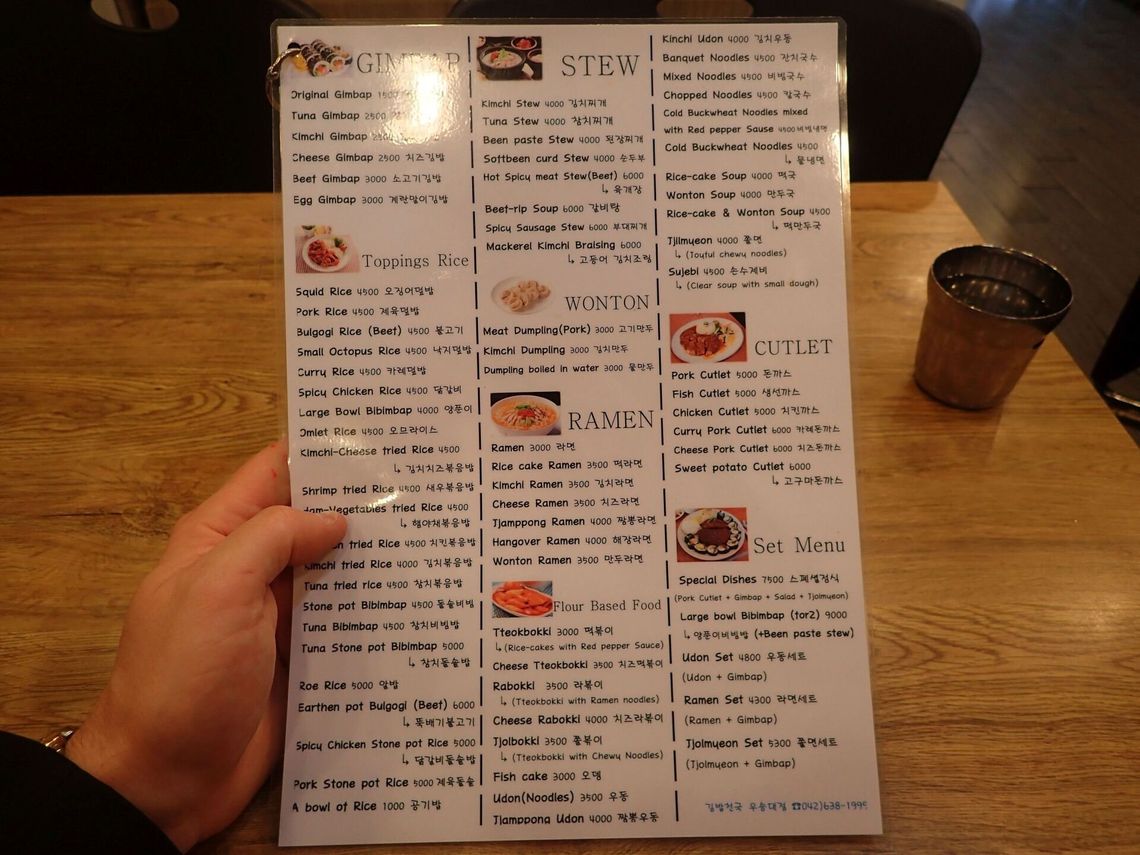 GIMBAP
Original Gimbap
Tuna Gimbap 2500
Kimchi Gimbap 2500
Cheese Gimbap 2500 치즈김밥
Beef Gimbap 3000 소고기김밥
Egg Gimbap 3000 계란말이김밥
Toppings Rice
Squid Rice 4500 오징어덮밥
Pork Rice 4500 제육덮밥
Bulgogi Rice (Beef) 4500 불고기
Small Octopus Rice 4500 낙지덮밥
Curry Rice 4500 카레덮밥
Spicy Chicken Rice 4500 닭갈비
Large Bowl Bibimbap 4000 양푼이
Omlet Rice 4500 오므라이스
Kimchi-Cheese fried Rice 4500
↳ 김치치즈볶음밥
Shrimp fried Rice 4500 새우볶음밥
Ham-Vegetables fried Rice 4500
↳ 햄야채볶음밥
fried Rice 4500 치킨볶음밥
Kimchi fried Rice 4000 김치볶음밥
Tuna fried rice 4500 참치볶음밥
Stone pot Bibimbap 4500 돌솥비빔
Tuna Bibimbap 4500 참치비빔밥
Tuna Stone pot Bibimbap 5000
↳ 참치돌솥밥
Roe Rice 5000 알밥
Earthen pot Bulgogi (Beef) 6000
↳ 뚝배기불고기
Spicy Chicken Stone pot Rice 5000
↳ 닭갈비돌솥밥
Pork Stone pot Rice 5000 제육돌솥
A bowl of Rice 1000 공기밥
STEW
Kimchi Stew 4000 김치찌개
Tuna Stew 4000 참치찌개
Been paste Stew 4000 된장찌개
Softbeen curd Stew 4000 순두부
Hot Spicy meat Stew(Beef) 6000
↳ 육개장
Beef-rip Soup 6000 갈비탕
Spicy Sausage Stew 6000 부대찌개
Mackerel Kimchi Braising 6000
↳ 고등어 김치조림
WONTON
Meat Dumpling(Pork) 3000 고기만두
Kimchi Dumpling 3000 김치만두
Dumpling boiled in water 3000 물만두
RAMEN
Ramen 3000 라면
Rice cake Ramen 3500 떡라면
Kimchi Ramen 3500 김치라면
Cheese Ramen 3500 치즈라면
Tjamppong Ramen 4000 짬뽕라면
Hangover Ramen 4000 해장라면
Wonton Ramen 3500 만두라면
Flour Based Food
Tteokbokki 3000 떡볶이
↳ (Rice-cakes with Red pepper Sauce)
Cheese Tteokbokki 3500 치즈떡볶이
Rabokki 3500 라볶이
↳ (Tteokbokki with Ramen noodles)
Cheese Rabokki 4000 치즈라볶이
Tjolbokki 3500 쫄볶이
↳ (Tteokbokki with Chewy Noodles)
Fish cake 3000 오뎅
Udon(Noodles) 3500 우동
Tjamppong Udon 4000 짬뽕우동
Kinchi Udon 4000 김치우동
Banquet Noodles 4500 잔치국수
Mixed Noodles 4500 비빔국수
Chopped Noodles 4500 칼국수
Cold Buckwheat Noodles mixed
with Red pepper Sause 4500 비빔냉면
Cold Buckwheat Noodles 4500
↳ 물냉면
Rice-cake Soup 4000 떡국
Wonton Soup 4000 만두국
Rice-cake & Wonton Soup 4500
↳ 떡만두국
Tjilmyeon 4000 쫄면
↳ (Toyful chewy noodles)
Sujebi 4500 손수제비
↳ (Clear soup with small dough)
CUTLET
Pork Cutlet 5000 돈까스
Fish Cutlet 5000 생선까스
Chicken Cutlet 5000 치킨까스
Curry Pork Cutlet 6000 카레돈까스
Cheese Pork Cutlet 6000 치즈돈까스
Sweet potato Cutlet 6000
↳ 고구마돈까스
Set Menu
Special Dishes 7500 스페셜정식
(Pork Cutlet + Gimbap + Salad + Tjolmyeon)
Large bowl Bibimbap (for2) 9000
↳ 양푼이비빔밥 (+Been paste stew)
Udon Set 4800 우동세트
(Udon + Gimbap)
Ramen Set 4300 라면세트
(Ramen + Gimbap)
Tjolmyeon Set 5300 쫄면세트
(Tjolmyeon + Gimbap)
김밥천국 우송대점 ☎042)638-1995